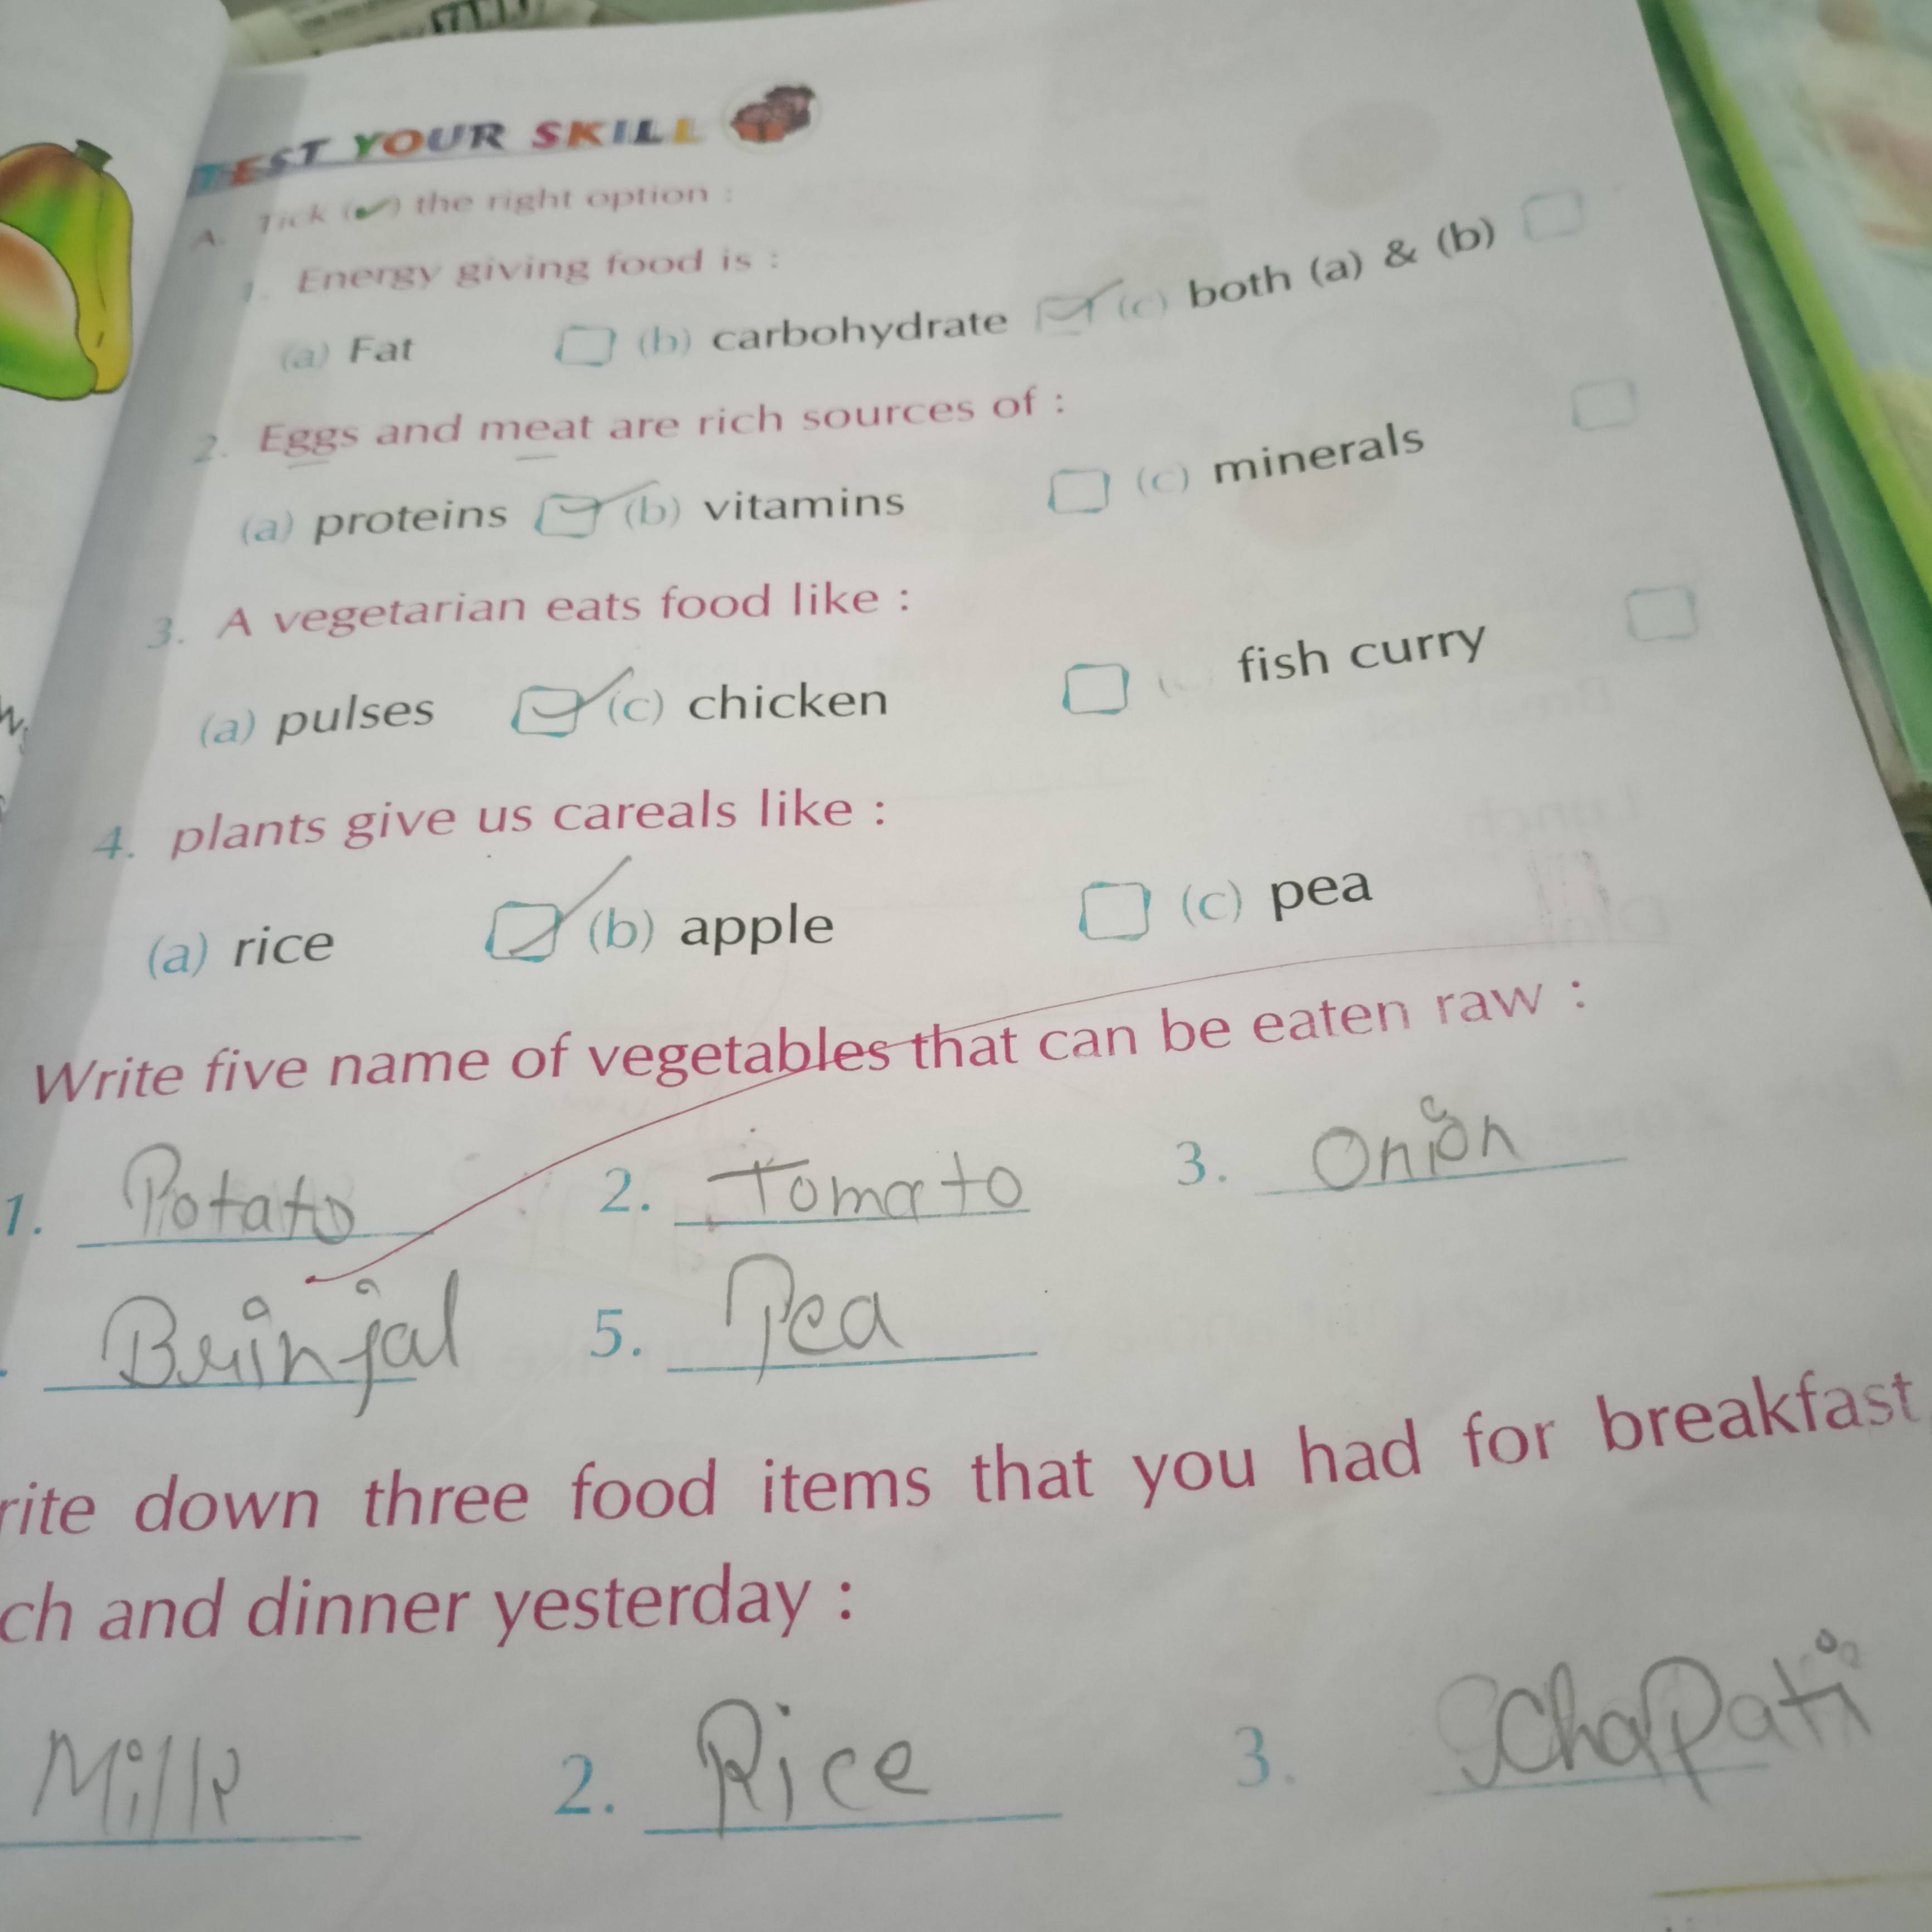 TEST YOUR SKILL
A. Tick (✔) the right option :
1. Energy giving food is :
(a) Fat (b) carbohydrate (c) both (a) & (b)
2. Eggs and meat are rich sources of :
(a) proteins (b) vitamins (c) minerals
3. A vegetarian eats food like :
(a) pulses (c) chicken fish curry
4. plants give us careals like :
(a) rice (b) apple (c) pea
Write five name of vegetables that can be eaten raw :
1. Potato 2. Tomato 3. Onion
Brinjal 5. Pea
rite down three food items that you had for breakfast
ch and dinner yesterday :
Milk 2. Rice 3. Chapati